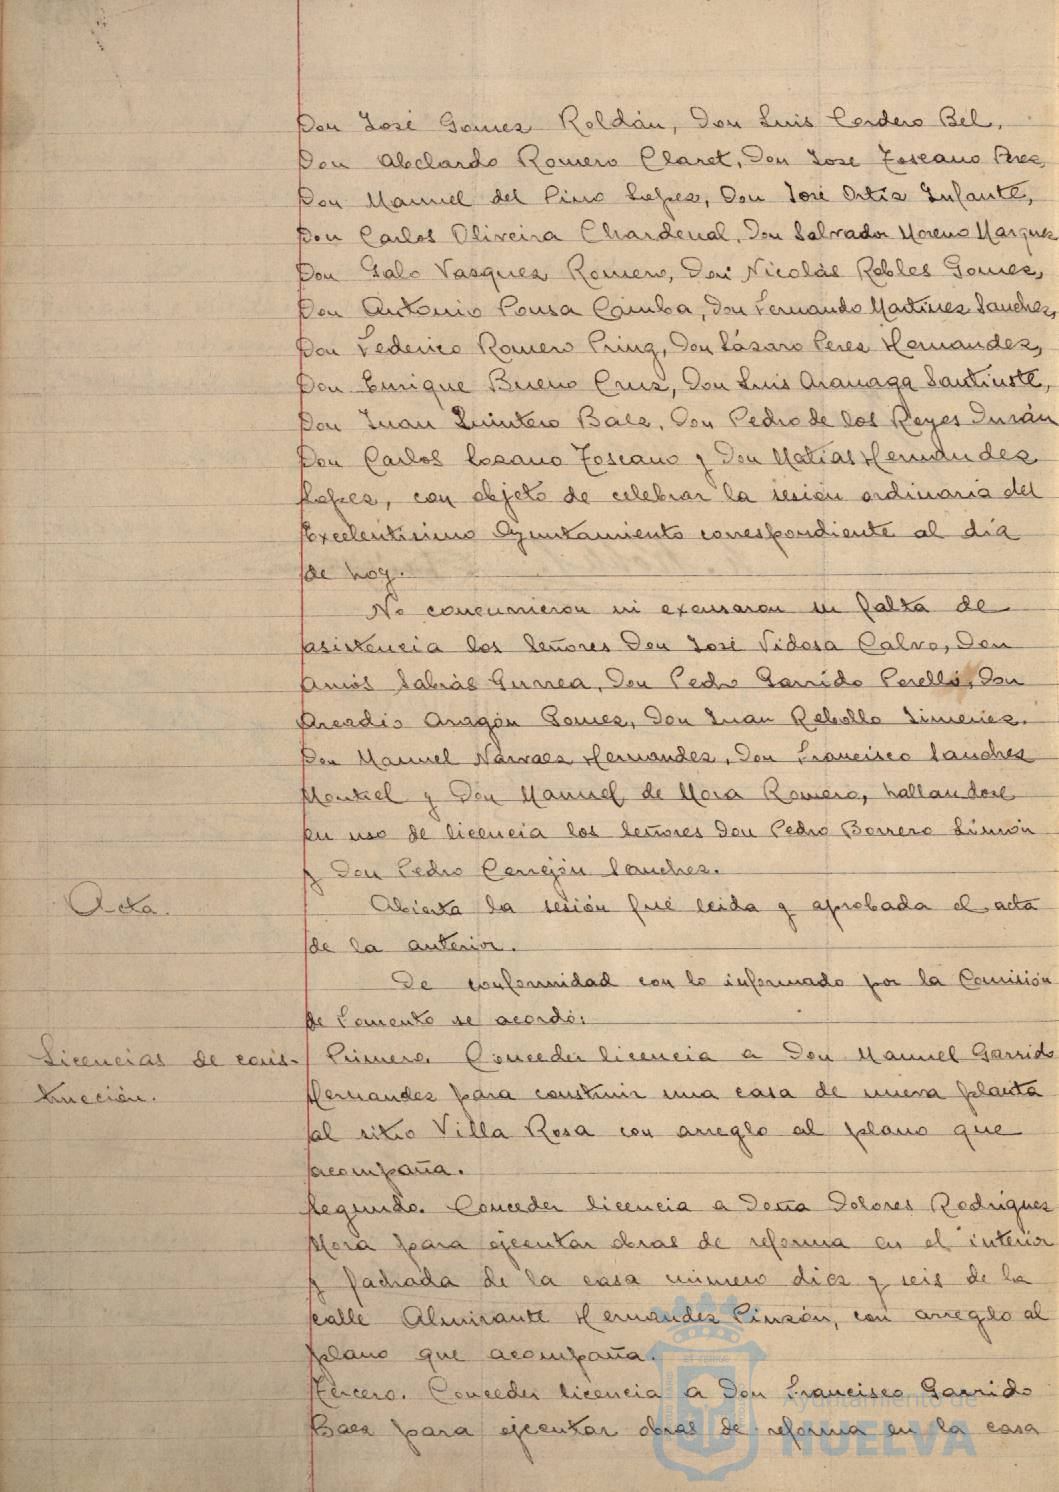 Don José Gomez Roldán, Don Luis Cordero Bel,
Don Abelardo Romero Claret, Don José Toscano Perez,
Don Manuel del Pino Lopez, Don José Ortiz Infante,
Don Carlos Oliveira Chardenal, Don Salvador Moreno Marquez
Don Galo Vazquez Romero, Don Nicolás Robles Gomez,
Don Antonio Pousa Camba, Don Fernando Martinez Sanchez,
Don Federico Romero Pring, Don Lázaro Perez Hernandez,
Don Enrique Bueno Cruz, Don Luis Aranaga Santiuste,
Don Juan Quintero Baez, Don Pedro de los Reyes Durán
Don Carlos Lozano Toscano y Don Matías Hernández
Lopez, con objeto de celebrar la sesión ordinaria del
Excelentísimo Ayuntamiento correspondiente al día
de hoy.
No concurrieron ni excusaron su falta de
asistencia los Señores Don José Vidosa Calvo, Don
Amós Sabrás Gurrea, Don Pedro Garrido Perelló, Don
Arcadio Aragón Gomez, Don Juan Rebollo Jimenez,
Don Manuel Narvaez Hernandez, Don Francisco Sanchez
Montiel y Don Manuel de Mora Romero, hallandose
en uso de licencia los Señores Don Pedro Borrero Limón
y Don Pedro Cerrejón Sanchez.
Acta.
Abierta la sesión fué leida y aprobada el acta
de la anterior.
De conformidad con lo informado por la Comisión
de Fomento se acordó:
Licencias de cons-
trucción.
Primero. Conceder licencia a Don Manuel Garrido
Hernandez para construir una casa de nueva planta
al sitio Villa Rosa con arreglo al plano que
acompaña.
Segundo. Conceder licencia a Doña Dolores Rodríguez
Mora para ejecutar obras de reforma en el interior
y fachada de la casa número diez y seis de la
calle Almirante Hernandez Pinzón, con arreglo al
plano que acompaña.
Tercero. Conceder licencia a Don Francisco Garrido
Baez para ejecutar obras de reforma en la casa
Ayuntamiento de
HUELVA